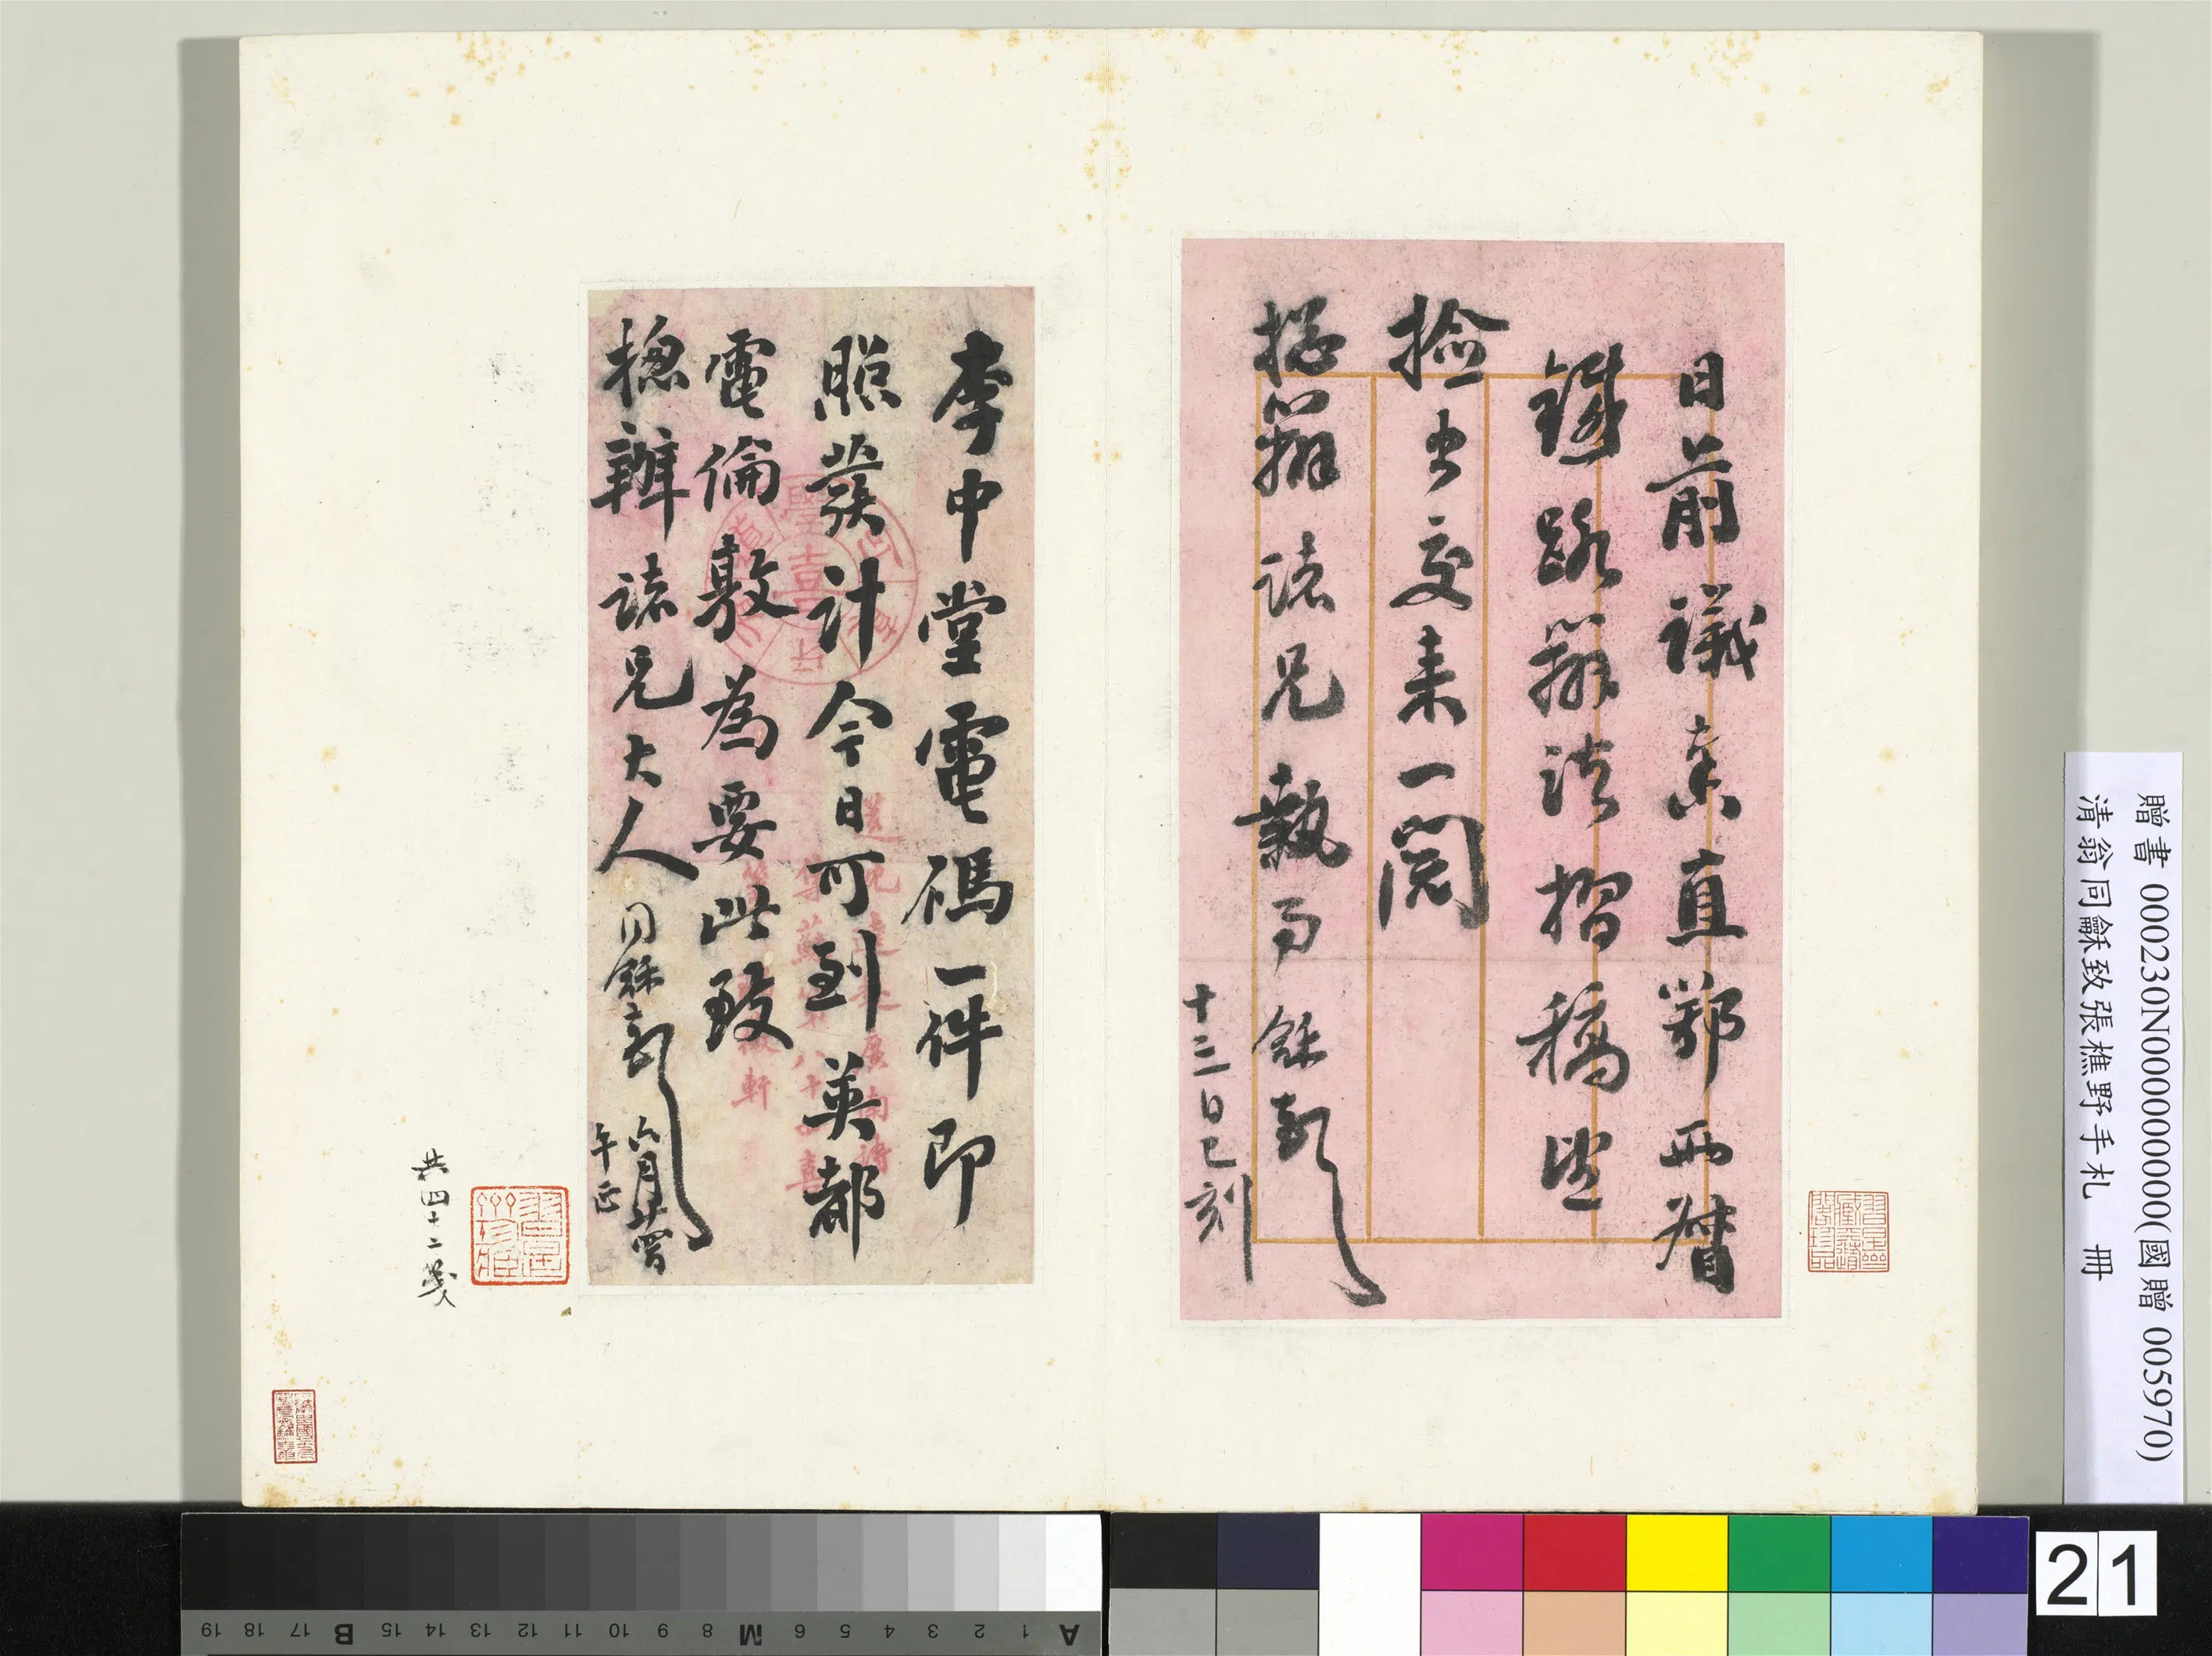 日前議奏直鄂兩督
鐵路辦法摺稿望
撿出交来一閱
捴辦諸兄執事 龢頓
十三日巳刻
李中堂電碼一件即
照發計今日可到英都
電倫敦為要此致
捴辦諸兄大人 同龢頓
六月
午正
共四十二箋
贈書 000230N000000000(國贈 005970)
清翁同龢致張樵野手札 冊
21
A 1 2 3 4 5 6 M 8 9 10 11 12 13 14 15 B 17 18 19